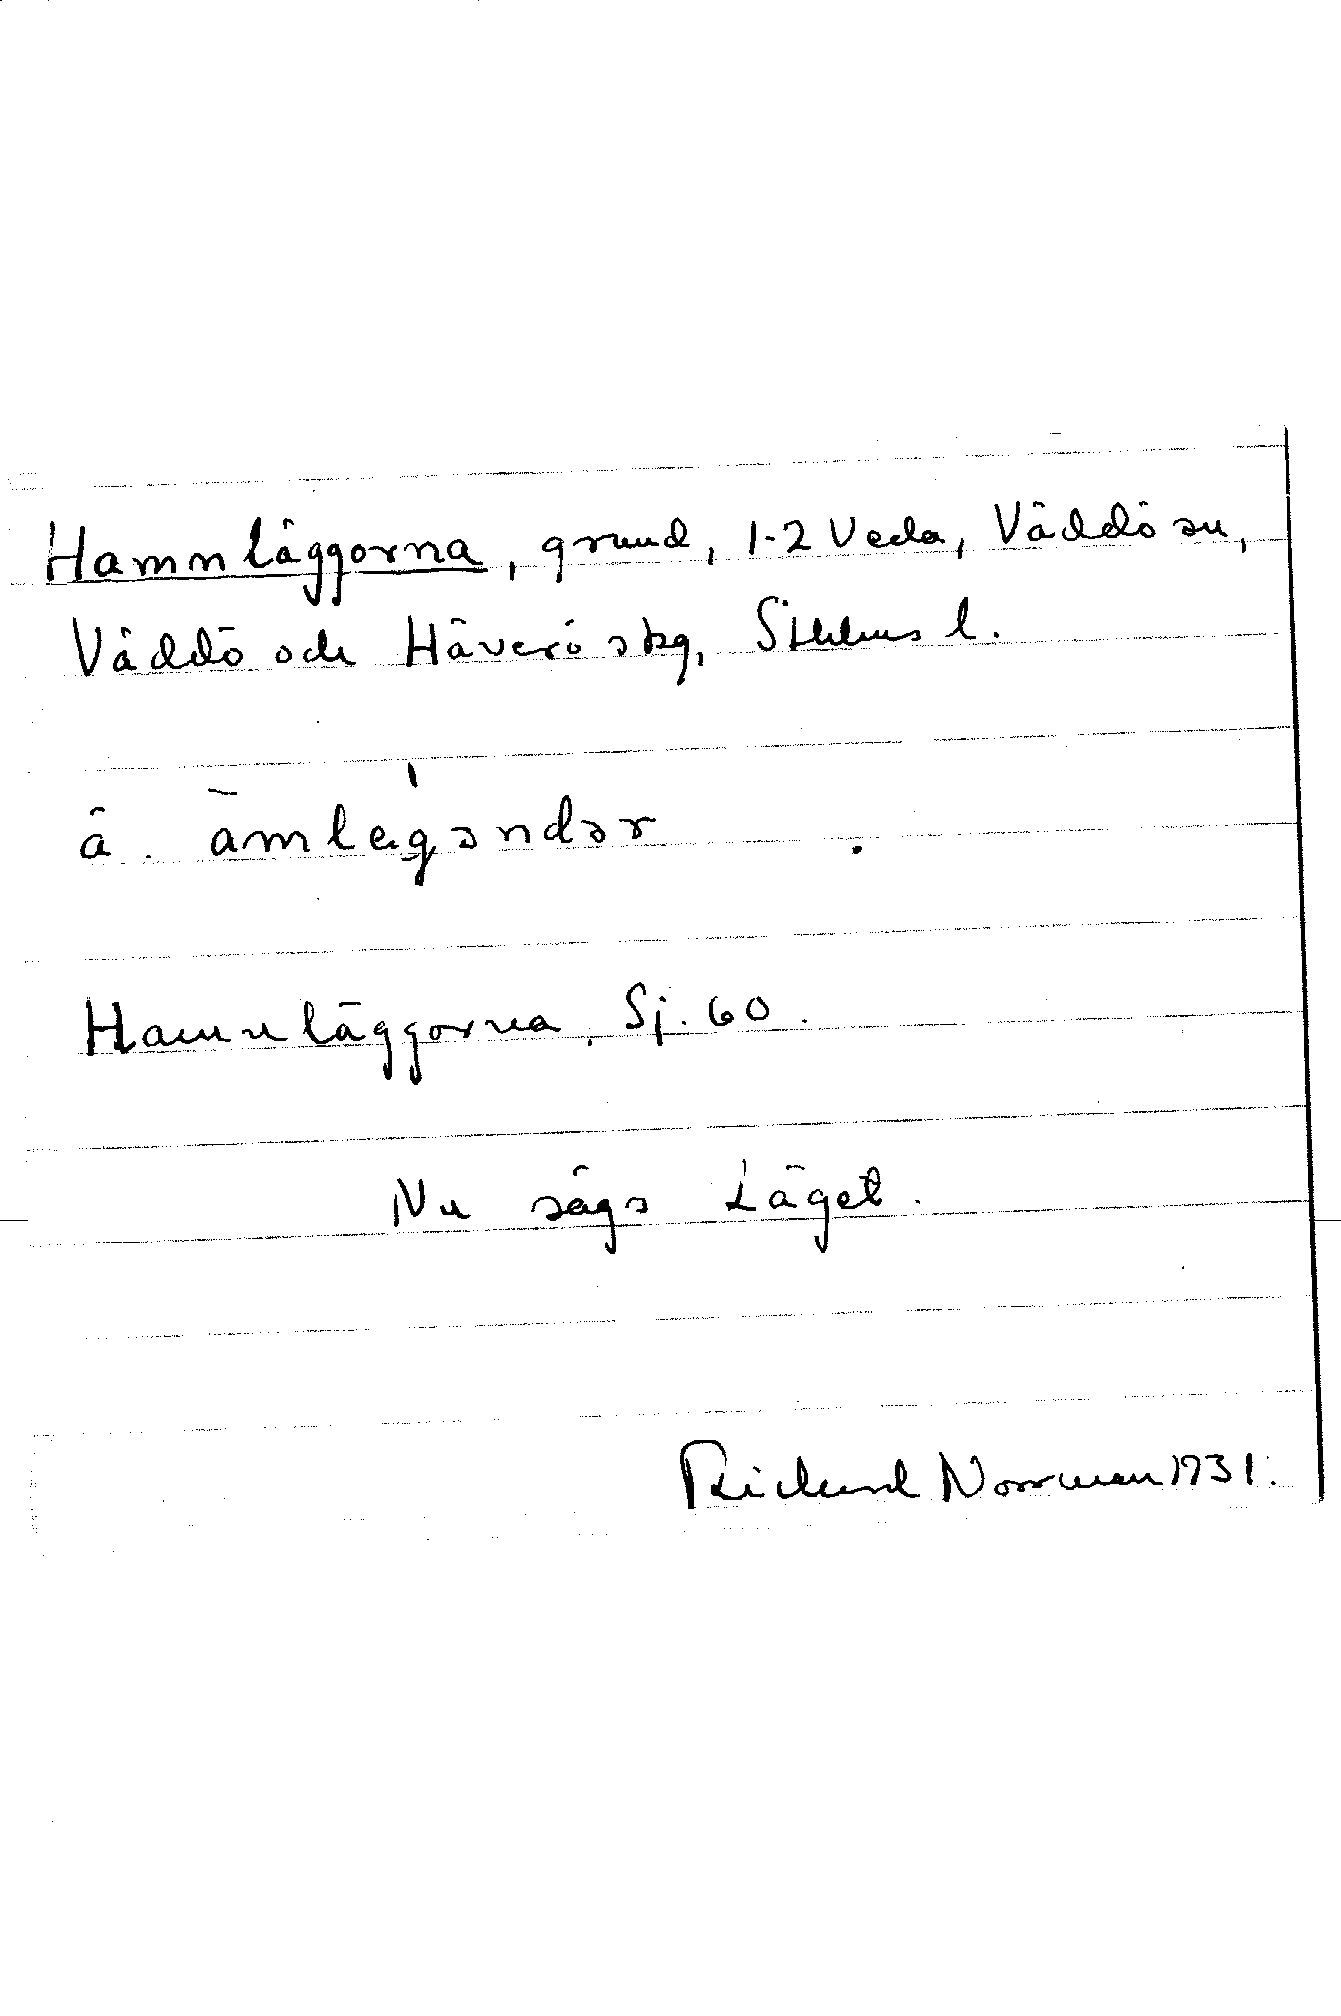 Hamnläggorna, grund, 1-2 Veda, Väddö sn,
Väddö och Häverö skg, Sthlms l.
ä. āmlęgəndər
Hamnläggorna, Sj. 60.
Nu sägs Läget.
Rickard Norrman 1931.